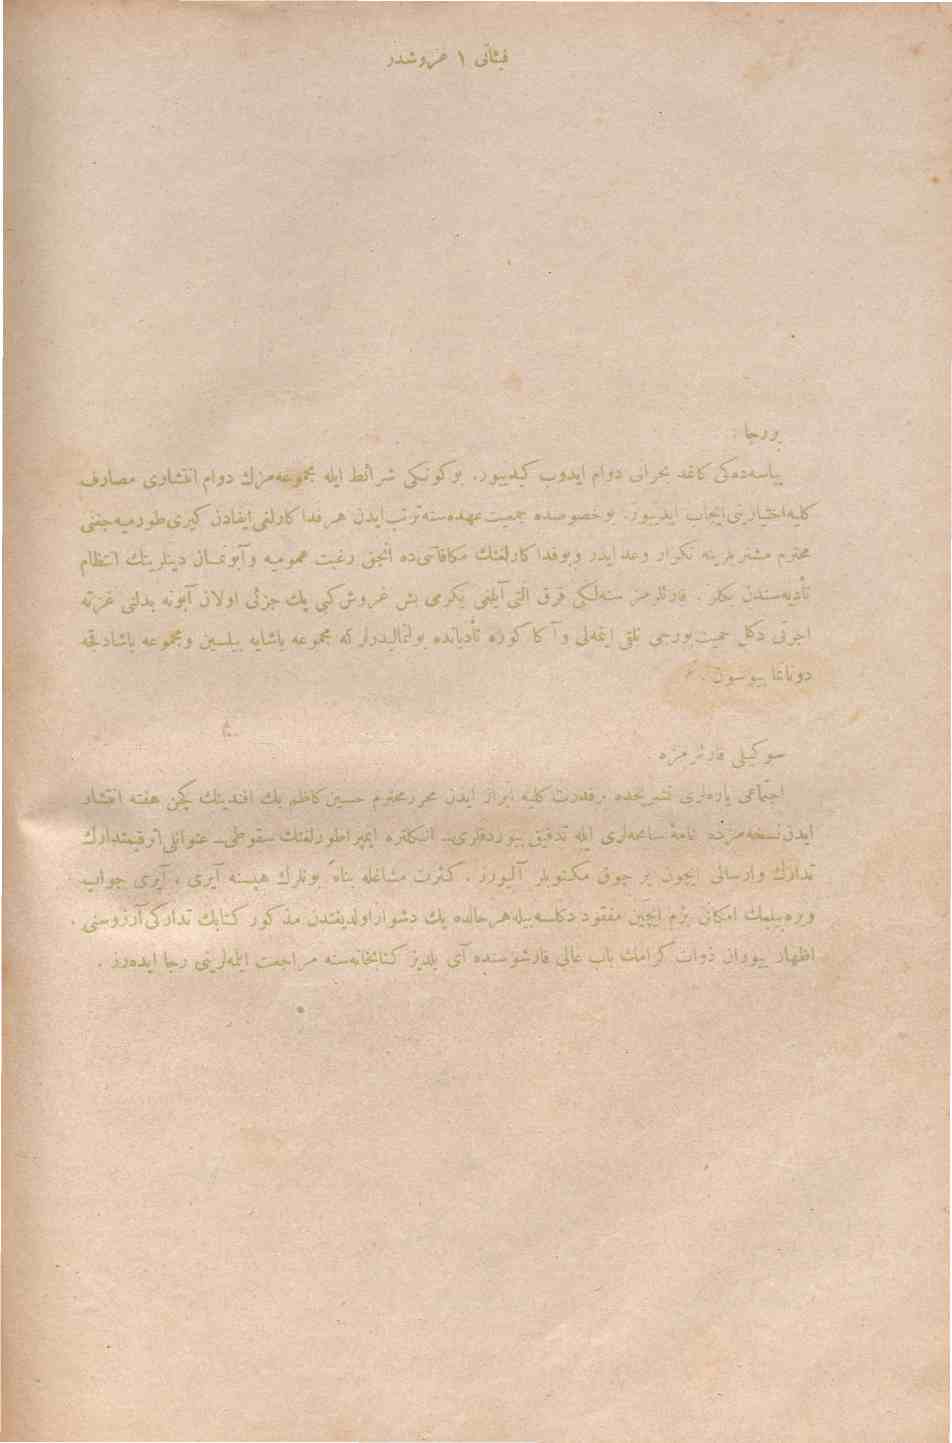 فیئاتی ۱ غروشدر
بر رجا :
پیاسه‌ده‌کی کاغد بحرانی دوام ایدوب کیدییور. بوکونکی شرائط ایله مجموعه‌مزك دوام انتشاری مصارف
کلیه اختیارینی ایجاب ایدییور. بو خصوصده جمعیت عهده‌سنه ترتب ایدن هر فداکارلغی ایفادن کیری طورمیه‌جغنی
محترم مشتریلرینه تکرار وعد ایدر و بو فداکارلغنك مکافاتی‌ده آنجق رغبت عمومیه و آبونمان دینلرینك انتظام
تأدیه‌سندن بکلر . قارئلرمز سنه‌لکی قرق التی آیلغی یکرمی بش غروش کبی پك جزئی اولان آبونه بدلنی غزته
اجرتی دکل حمیت بورجی تلقی ایتمه‌لی و آکا کوره تأدیاتده بولنمالیدرلر که مجموعه یاشایه بیلسین و مجموعه یاشادقجه
دونانما بیوسون .
سوکیلی قارئلرمزه
اجتماعی یاره‌لری تشریحده برقدرت کلیه ابراز ایدن محرر محترم حسین کاظم بك افندینك کچن هفته انتشار
ایدن نسخه‌مزده نامهٔ سامیه‌لری ایله تدقیق بیوردقلری ـ انکلتره ایمپراطورلغنك سقوطی ـ عنوانلی اثر قیمتدارك
تدارك وارسالی ایچون بر چوق مکتوبلر آلیورز . کثرت مشاغله بناءً بونلرك هپسنه آیری ، آیری جواب
ویره‌بیلمك امکانی بزم ایچین مفقود دکلسه بیله هر حالده پك دشوار اولدیغندن مذکور کتابك تدارکی آرزوسنی
اظهار بیوران ذوات کرامك باب عالی قارشوسنده آی یلدیز کتابخانه‌سنه مراجعت ایله‌لرینی رجا ایده‌رز .